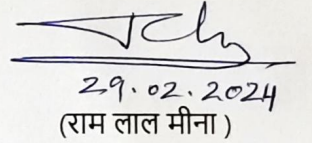 29.02.2024
(राम लाल मीना)